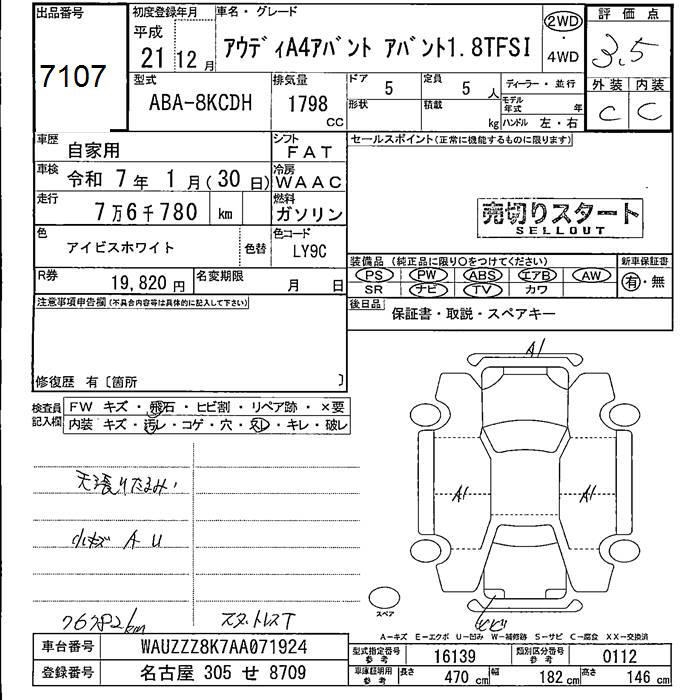 出品番号
7107
初度登録年月
平成
21 12 月
車名・グレード
アウディA4アバント アバント1.8TFSI
2WD
・
4WD
評価点
3.5
外装 内装
C C
型式
ABA-8KCDH
排気量
1798
CC
ドア
5
定員
5 人
形状
積載
kg
ディーラー・並行
モデル年式 年
ハンドル 左・右
車歴
自家用
シフト
FAT
車検
令和 7 年 1 月(30 日)
冷房
WAAC
走行
7万6千780 km
燃料
ガソリン
色
アイビスホワイト
色替
色コード
LY9C
R券
19,820 円
名変期限
月 日
セールスポイント(正常に機能するものに限ります)
売切りスタート
SELLOUT
装備品 (純正品に限り○をつけてください)
PS PW ABS エアB AW
SR ナビ TV カワ
新車保証書
有・無
後日品
保証書・取説・スペアキー
注意事項申告欄(不具合内容等は具体的に記入して下さい)
修復歴 有〔箇所 〕
検査員記入欄
FW キズ・飛石・ヒビ割・リペア跡・×要
内装 キズ・汚レ・コゲ・穴・スレ・キレ・破レ
天張りたるみ
小キズ A U
76782km
スタットレスT
A1
A1
A1
ヒビ
スペア
A−キズ E−エクボ U−凹み W−補修跡 S−サビ C−腐食 XX−交換済
車台番号
WAUZZZ8K7AA071924
登録番号
名古屋 305 せ 8709
型式指定番号
参考
16139
類別区分番号
参考
0112
車庫証明用
参考
長さ
470 cm
幅
182 cm
高さ
146 cm